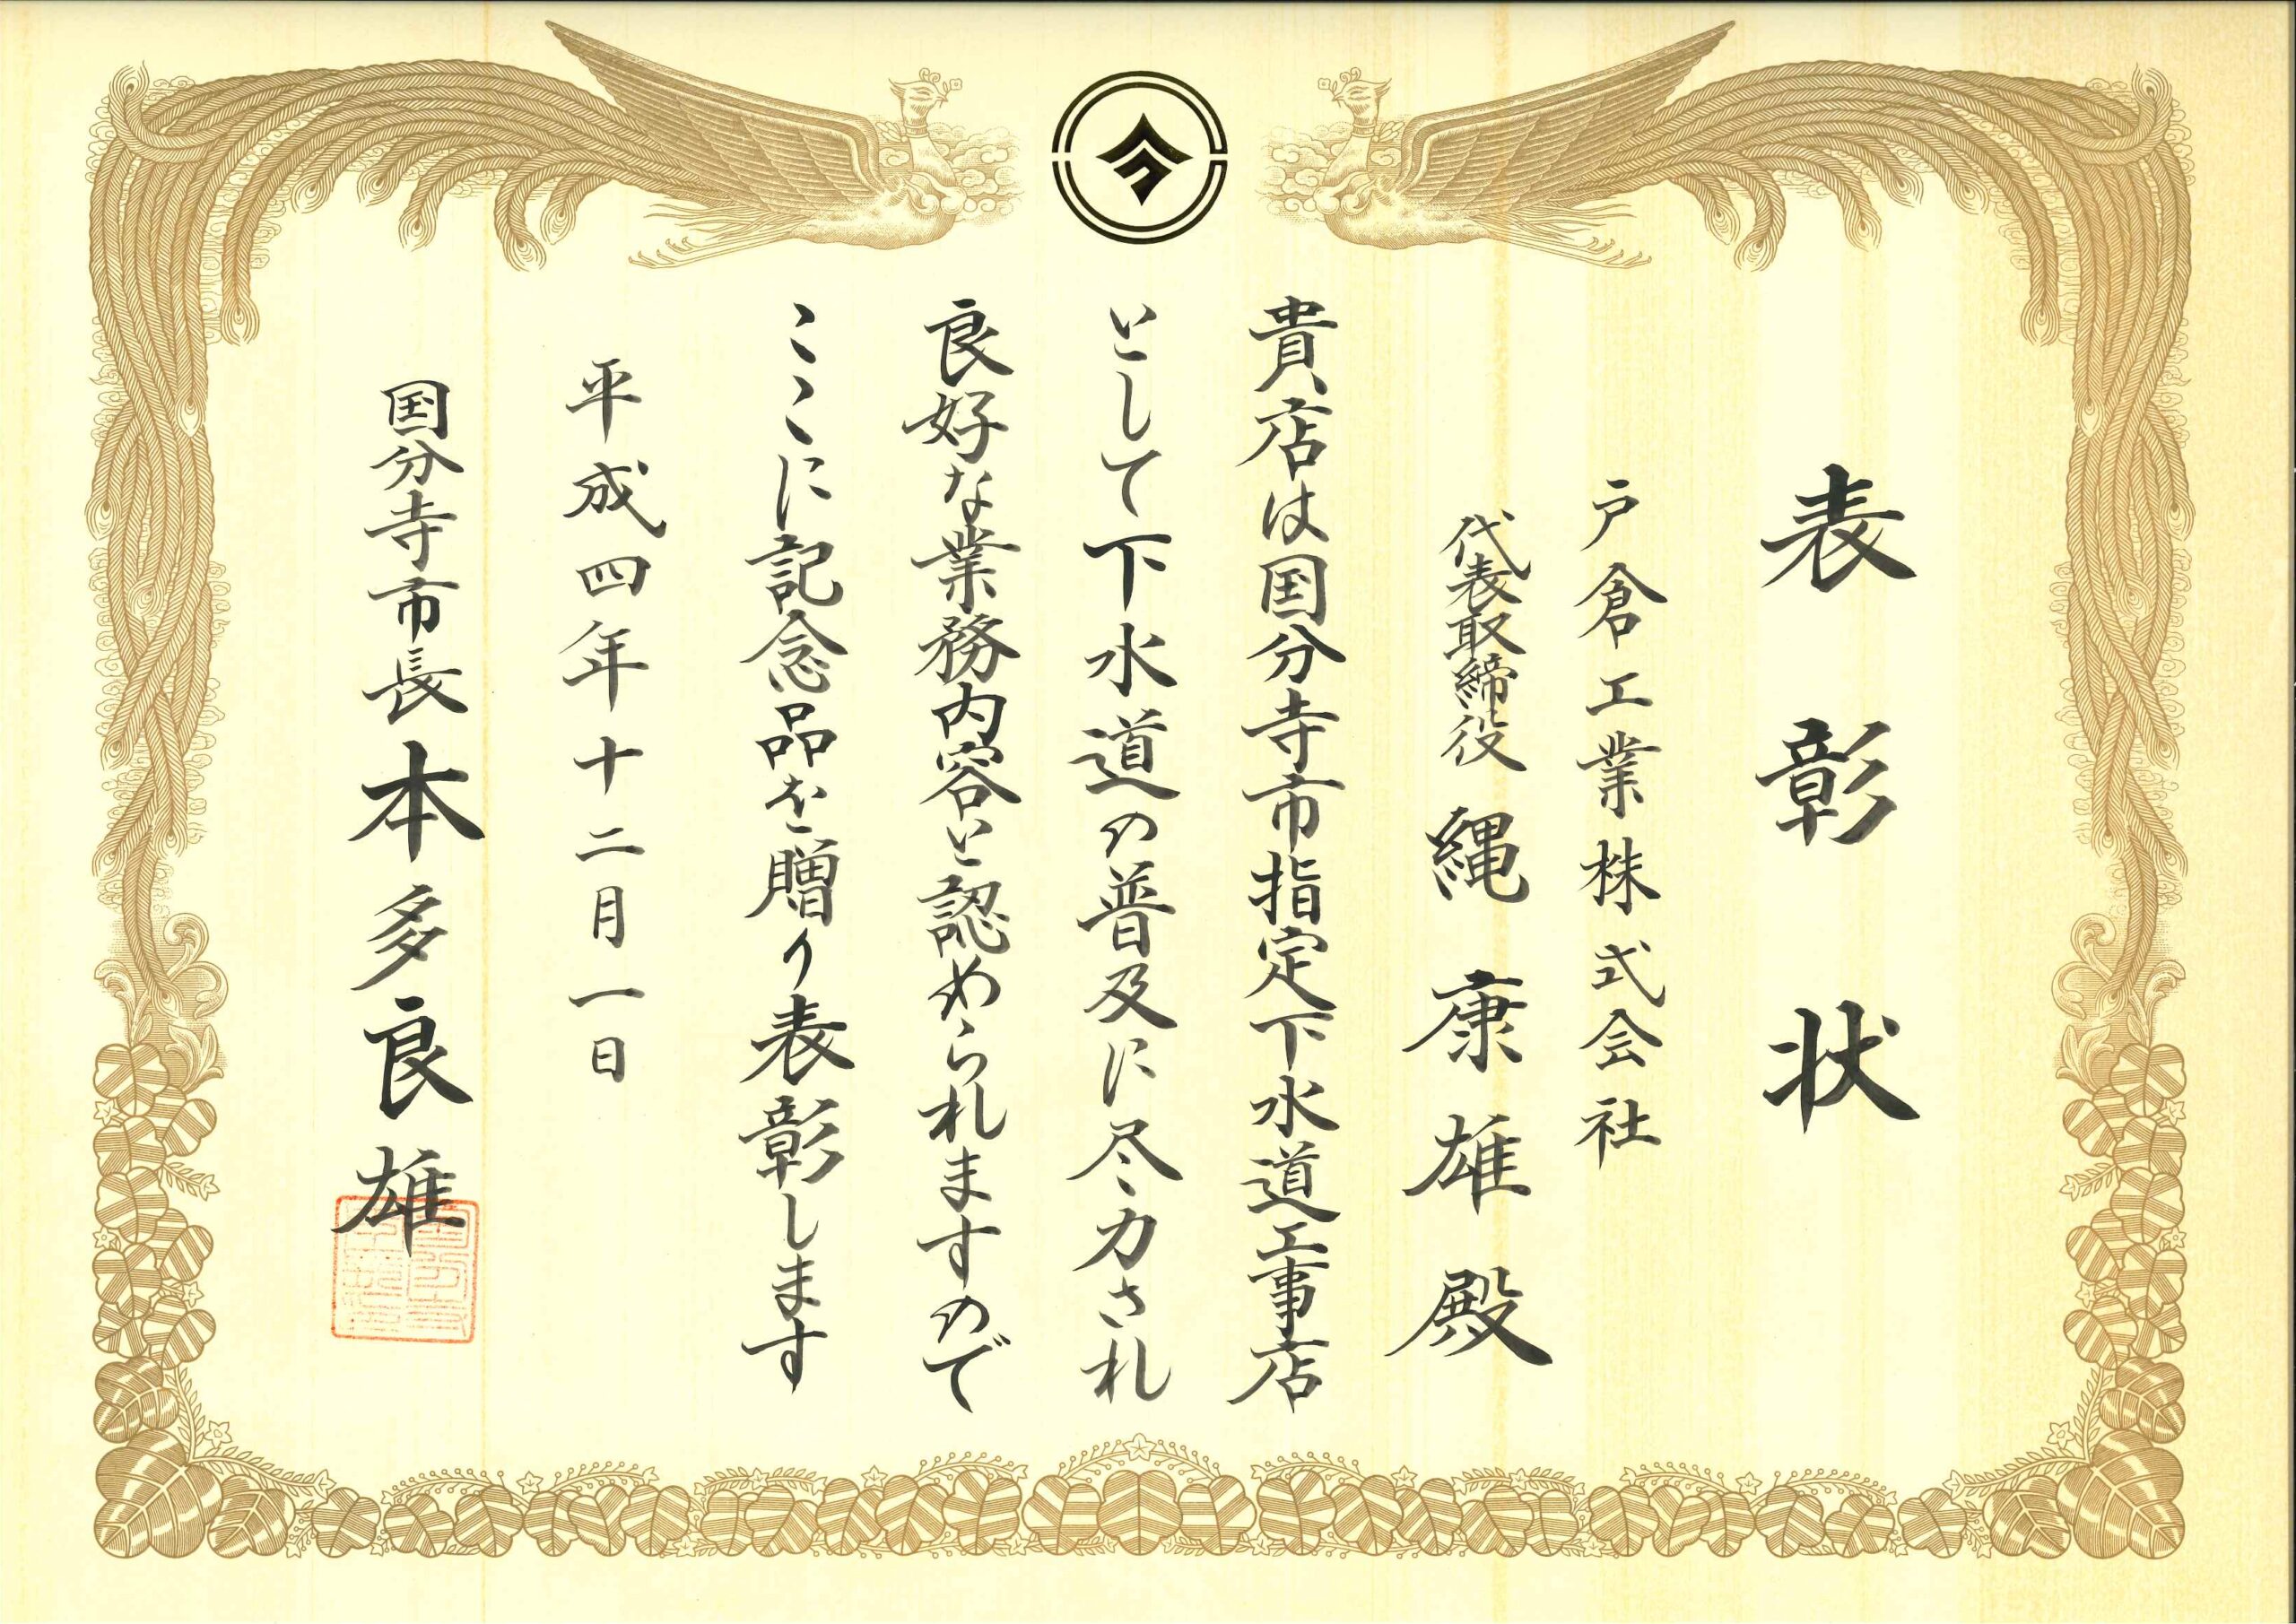 表彰状
戸倉工業株式会社
代表取締役 縄康雄殿
貴店は国分寺市指定下水道工事店
として下水道の普及に尽力され
良好な業務内容と認められますので
ここに記念品を贈り表彰します
平成四年十二月一日
国分寺市長 本多良雄